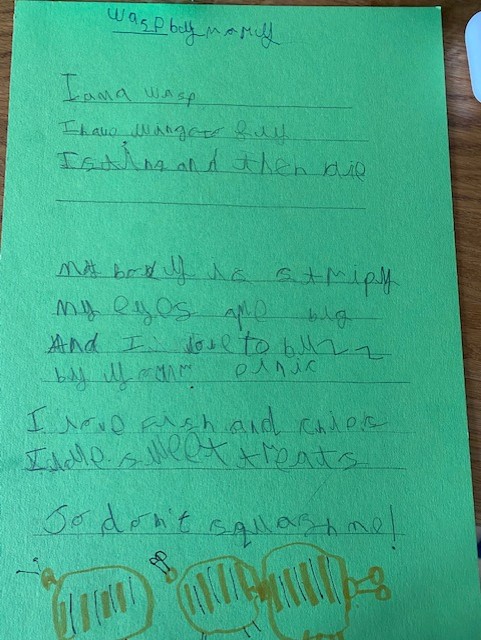 Wasp by Marcy
I am a wasp
I have wings to fly
I sting and then die
My body is stripy
My eyes are big
And I love to buzz
by your picnic
I love fish and chips
I love sweet treats
So don't squash me!